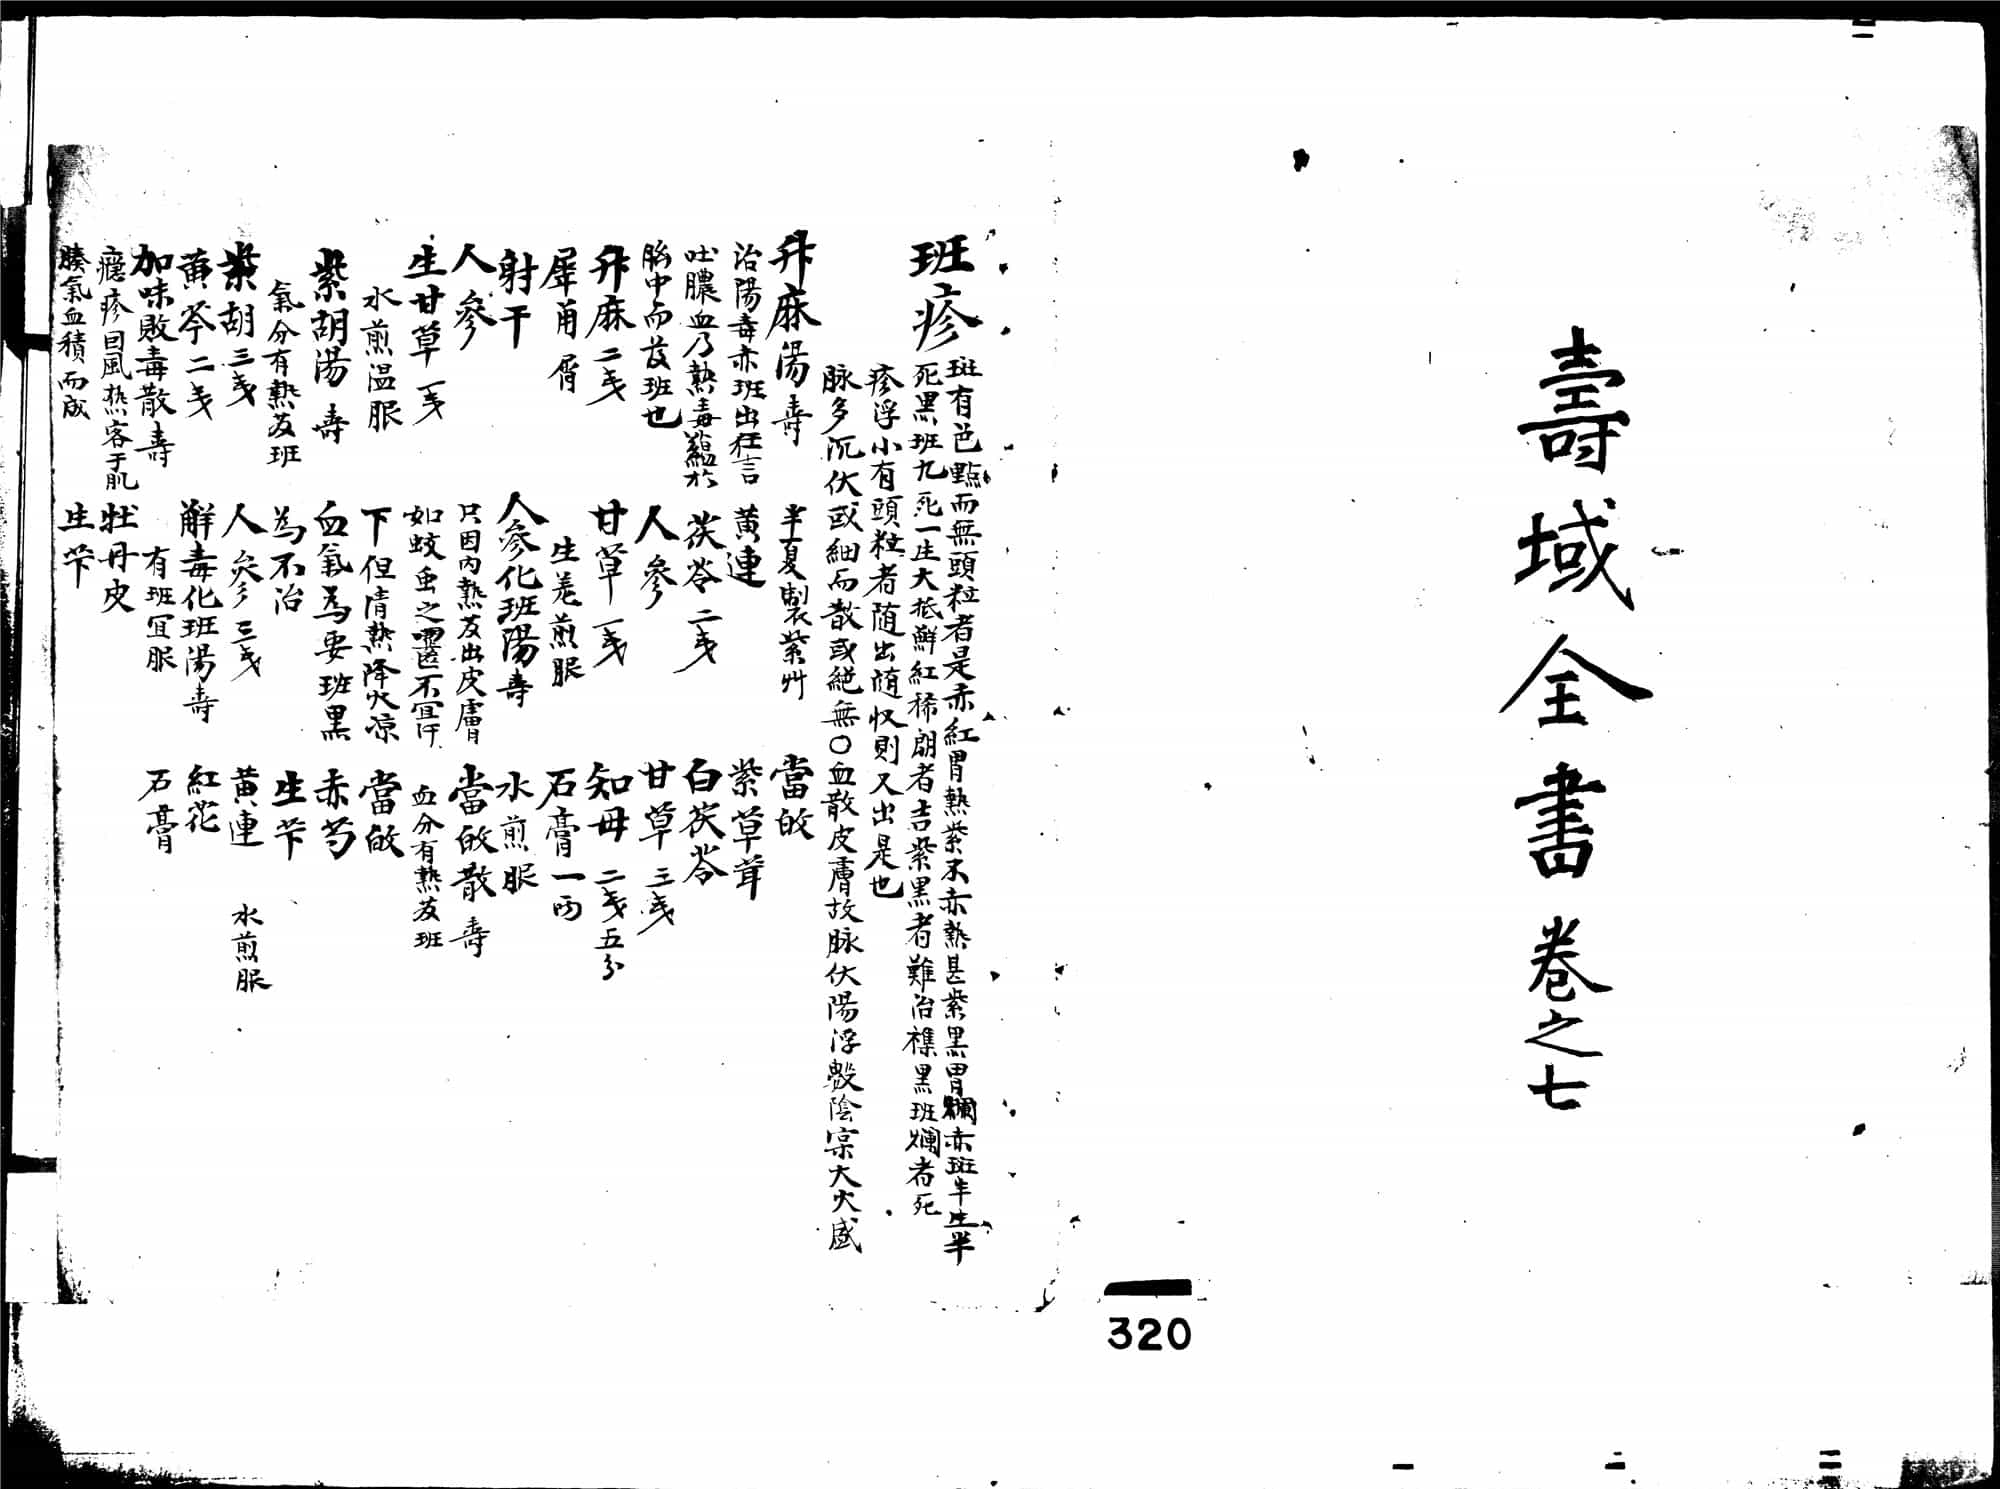 壽域全書卷之七
班疹
斑有芭點而無頭粒者是赤紅胃熱紫不赤熱甚紫黒胃爛赤斑半生半
死黒班九死一生大抵鮮紅稀朗者吉紫黒者難治襍黒班爛者死
疹浮小有頭粒者随出随収則又出是也
脉多沉伏或細而散或絶無〇血散皮膚故脉伏陽浮數陰宲大火盛
升麻湯 壽
治陽毒赤班出狂言
吐膿血乃熱毒蘊於
胎中而发班也
升麻二戔
犀角屑
射干
人參
生甘草一戔
水煎温服
紫胡湯 壽
氣分有熱发班
柴胡三戔
黄芩二戔
加味敗毒散 壽
癮疹因風热客于肌
腠氣血積而成
半夏製紫艸
黄連
茯苓二戔
人參
甘草一戔
生羗煎服
人參化班湯壽
只因内熱发出皮膚
如蚊虫之嚙不宜汗
下但清熱降火凉
血氣為要班黒
為不治
人参三戔
觧毒化班湯壽
有班宜服
牡丹皮
生芐
當皈
紫草茸
白茯苓
甘草三戔
知母二戔五分
石膏一兩
水煎服
當皈散 壽
血分有熱发班
當皈
赤芍
生芐
黄連 水煎服
紅花
石膏
320